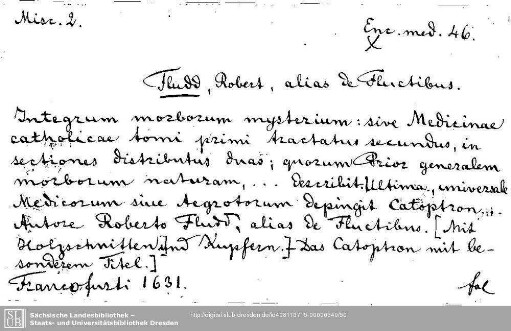 Misc. 2.
Enc. med. 46.
X
Fludd, Robert, alias de Fluctibus.
Integrum morborum mysterium: sive Medicinae
catholicae tomi primi tractatus secundus, in
sectiones distributus duas; quorum Prior generalem
morborum naturam, ... describit. Ultima, universale
Medicorum sive Aegrotorum depingit Catoptron ...
Autore Roberto Fludd, alias de Fluctibus. [Mit
Holzschnitten und Kupfern.] Das Catoptron mit be-
sonderem Titel.]
Francofurti 1631.
fol
SLUB
Sächsische Landesbibliothek –
Staats- und Universitätsbibliothek Dresden